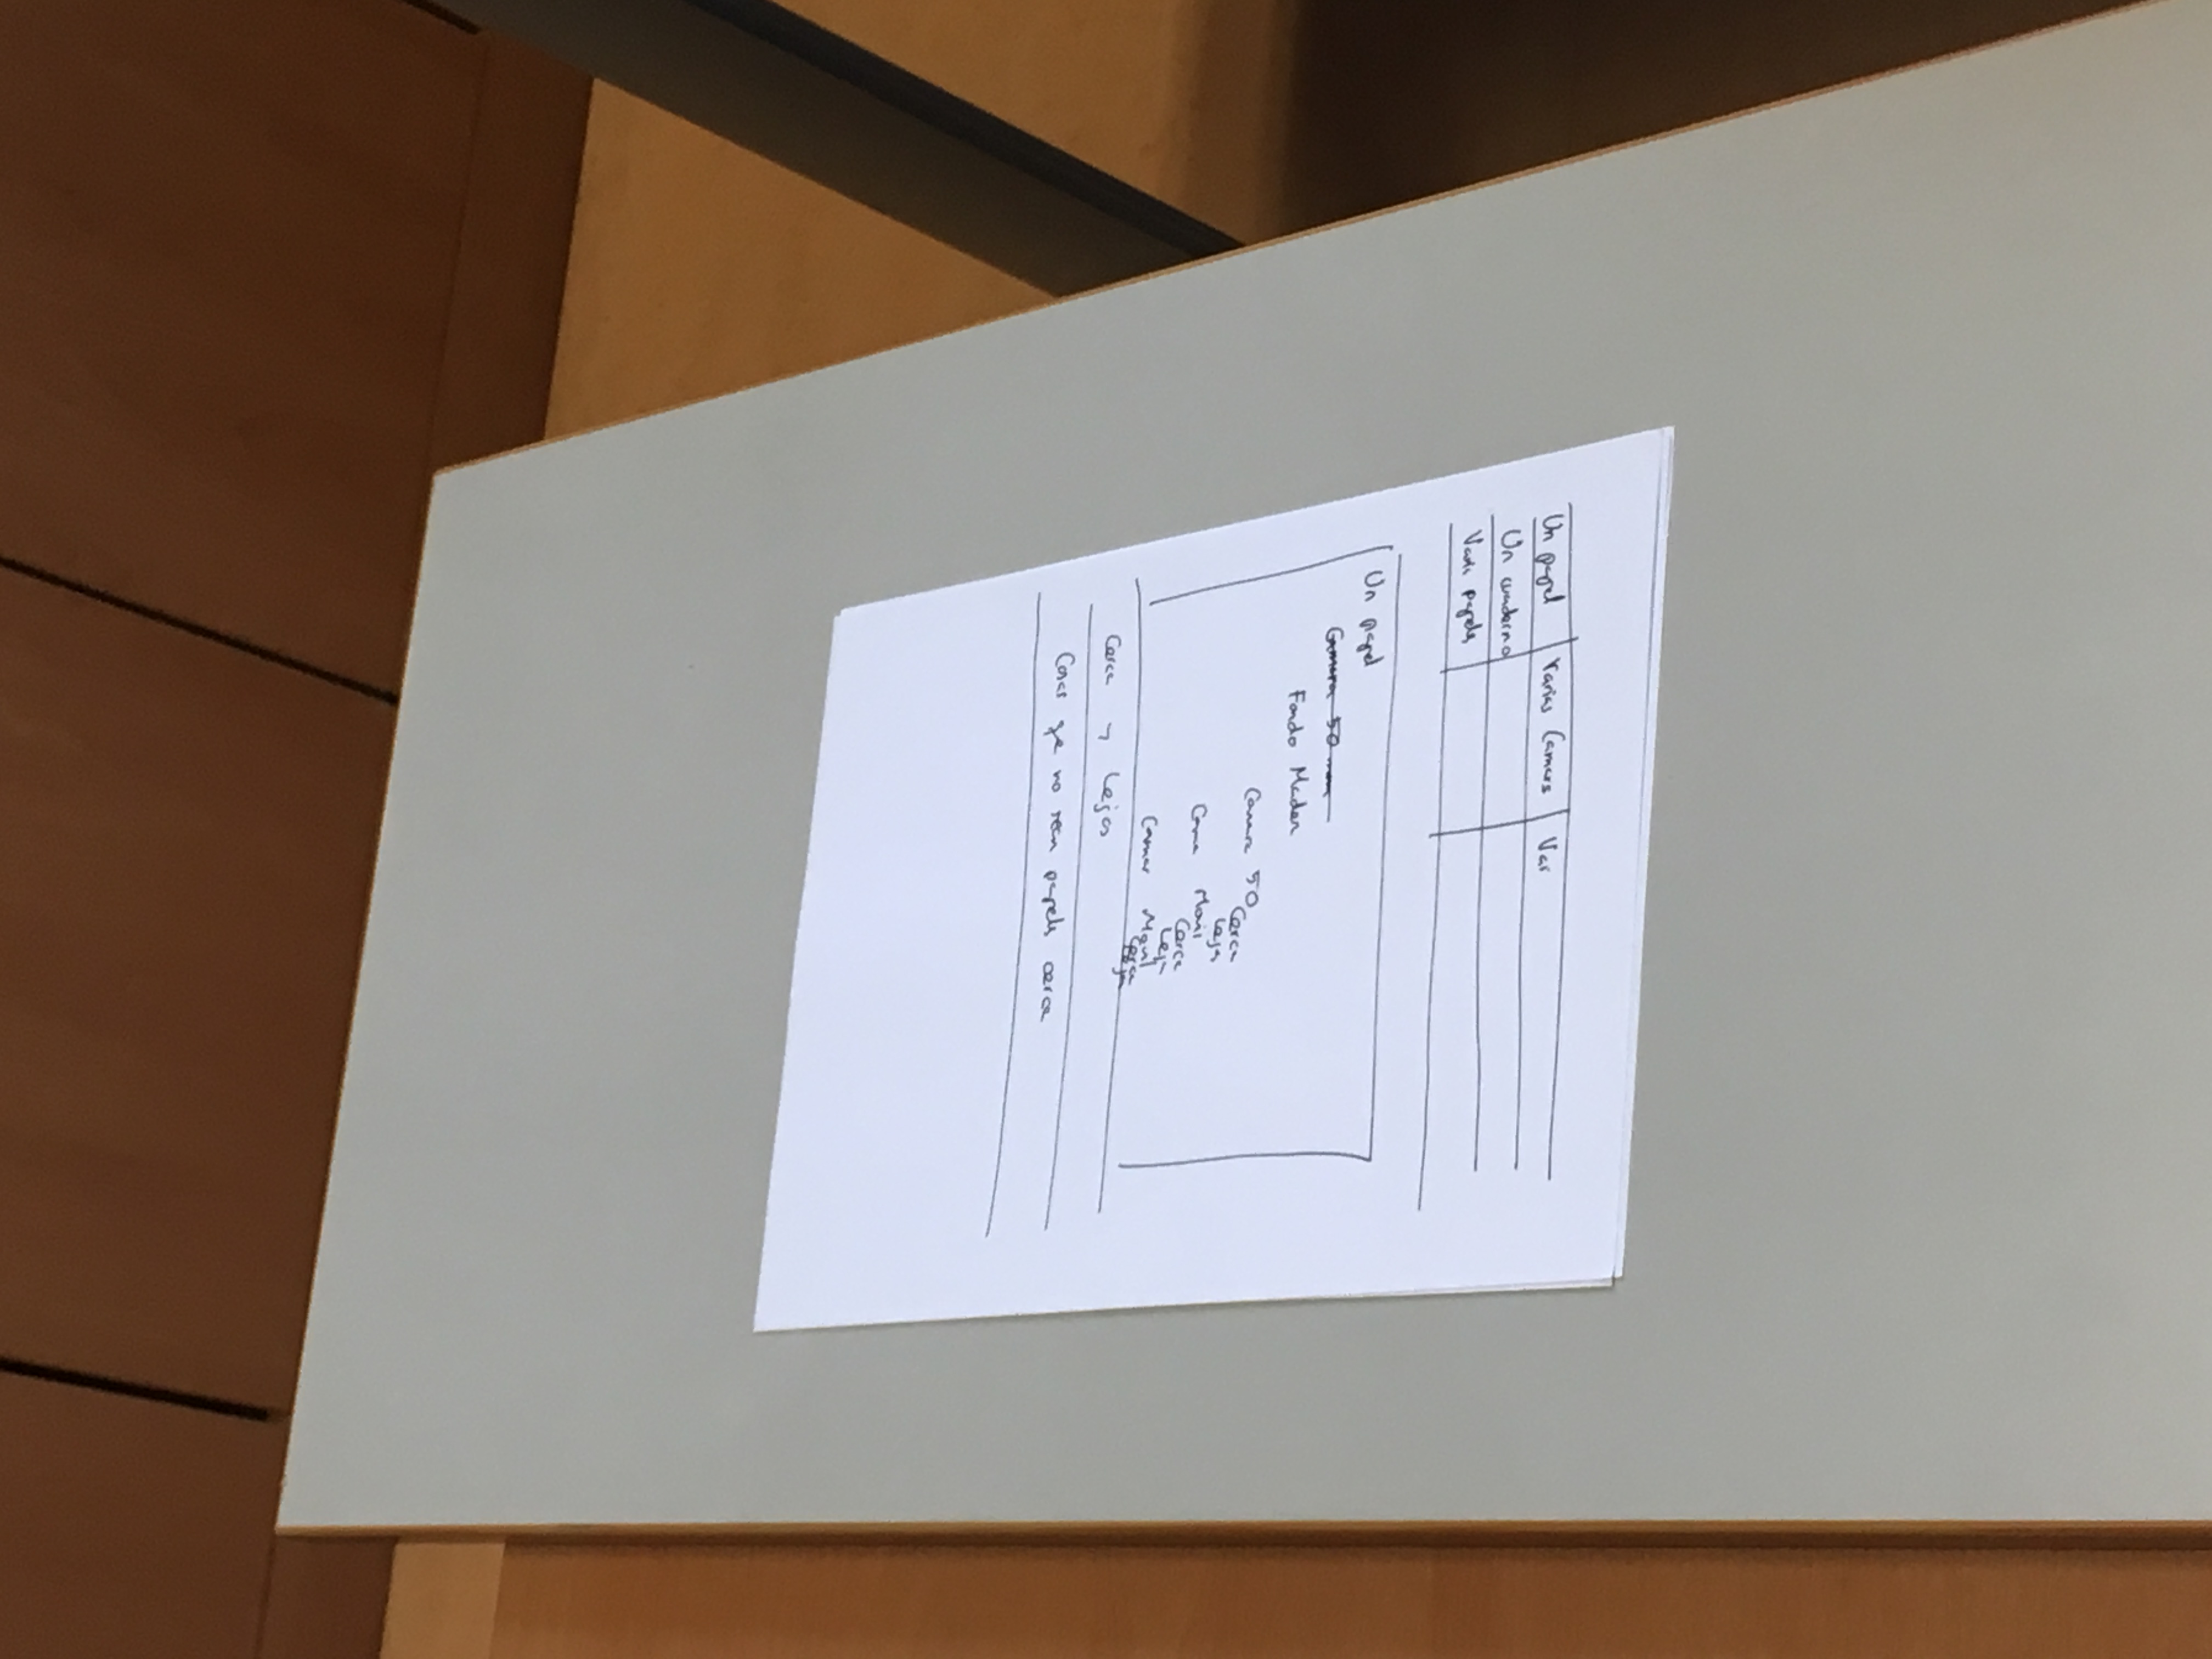 Un papel Varias Camaras Var
Un cuaderno
Varios papeles
Un papel
Camara 50 mm
Fondo Mader
Camara 50 Cerca
Lejos
Camara Movil
Cerca
Lejos
Camara Movil
Cerca
Cerca y Lejos
Cosas que no sean papeles cerca